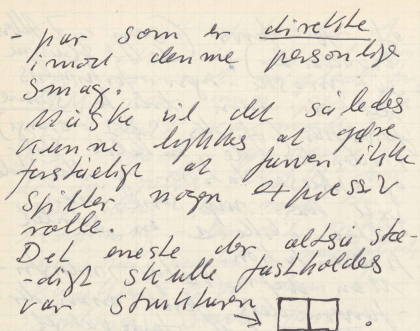 - par som er direkte
imod denne personlige
smag.
Måske vil det således
kunne lykkes at gøre
forståeligt at farven ikke
spiller nogen expressiv
rolle.
Det eneste der altså sta-
-digt skulle fastholdes
var strukturen → .